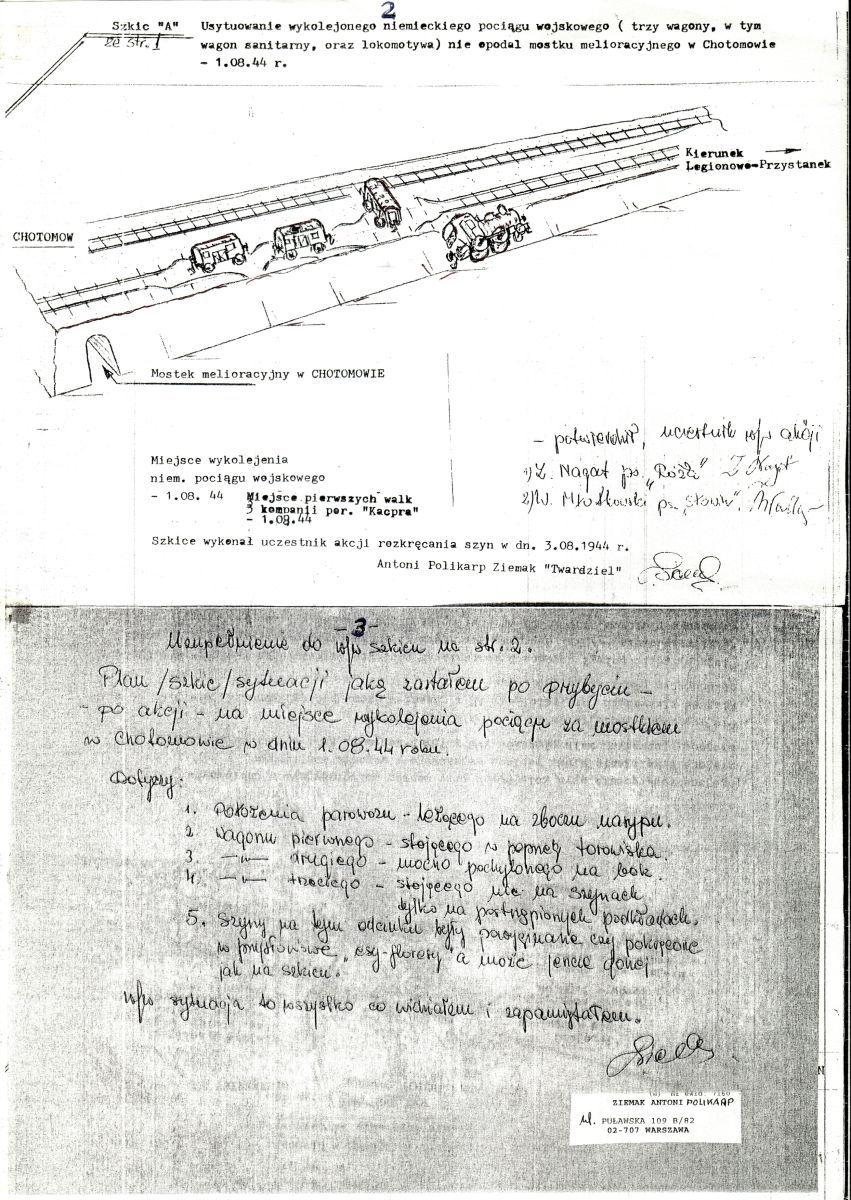 2
Szkic "A" Usytuowanie wykolejonego niemieckiego pociągu wojskowego ( trzy wagony, w tym
ze str. 1 wagon sanitarny, oraz lokomotywa) nie opodal mostku melioracyjnego w Chotomowie
- 1.08.44 r.
Kierunek
Legionowo-Przystanek
CHOTOMOW
Mostek melioracyjny w CHOTOMOWIE
- potwierdził, uczestnik w/w akcji
Miejsce wykolejenia
1) Z. Nagat ps. "Róży"
niem. pociągu wojskowego
- 1.08. 44 Miejsce pierwszych walk
2) W. Młotkowski ps.
3 kompanii por. "Kacpra"
- 1.08.44
Szkice wykonał uczestnik akcji rozkręcania szyn w dn. 3.08.1944 r.
Antoni Polikarp Ziemak "Twardziel"
-3-
Uzupełnienie do w/w szkicu na str. 2.
Plan /szkic/ sytuacji jaką zastałem po przybyciu -
- po akcji - na miejsce wykolejenia pociągu za mostkiem
w Chotomowie w dniu 1.08.44 roku.
Dotyczy:
1. Położenia parowozu - leżącego na zboczu nasypu.
2. Wagonu pierwszego - stojącego w poprzek torowiska.
3. -"- drugiego - mocno pochylonego na bok.
4. -"- trzeciego - stojącego nie na szynach
tylko na podkładach.
5. Szyny na tym odcinku były powyginane czy pokręcone
w przysłowiowe "esy-floresy" a może jeszcze
jak na szkicu.
w/w sytuacja to wszystko co widziałem i zapamiętałem.
ZIEMAK ANTONI POLIKARP
ul. PUŁAWSKA 109 B/82
02-707 WARSZAWA